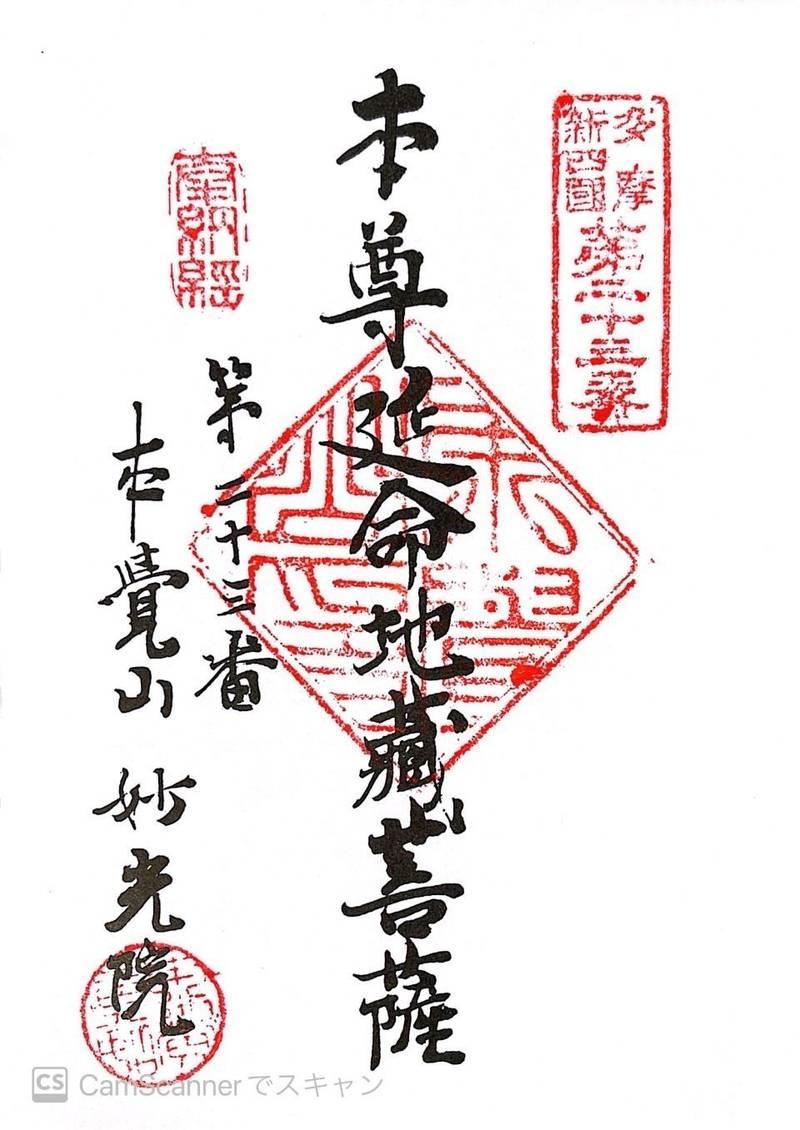 多摩
新四国
第二十三番
本尊延命地蔵菩薩
第二十三番
奉納経
本覺山 妙光院
CS CamScannerでスキャン